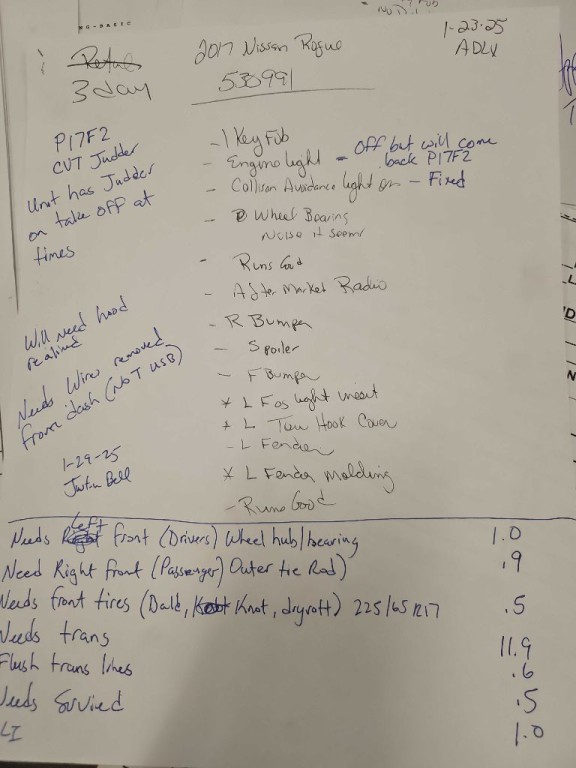 1-23-25
ADLX
2017 Nissan Rogue
530991
3 day
P17F2
CVT Judder
Unit has Judder
on take off at
times
Will need hood
realined
Needs Wires removed
from dash (NOT USB)
1-29-25
Justin Bell
- 1 Key Fob
- Engine light - Off but will come
back P17F2
- Collison Avoidance light on - Fixed
- Wheel Bearing
Noise it seems
- Runs Good
- After Market Radio
- R Bumper
- Spoiler
- F Bumper
* L Fog light insert
* L Tow Hook Cover
- L Fender
* L Fender Molding
- Runs Good
Needs left front (Drivers) Wheel hub/bearing 1.0
Need Right front (Passenger) Outer tie Rod) .9
Needs front tires (Bald, Knot, dryrott) 225/65 R17 .5
Needs trans 11.9
Flush trans lines .6
Needs Serviced .5
LI 1.0